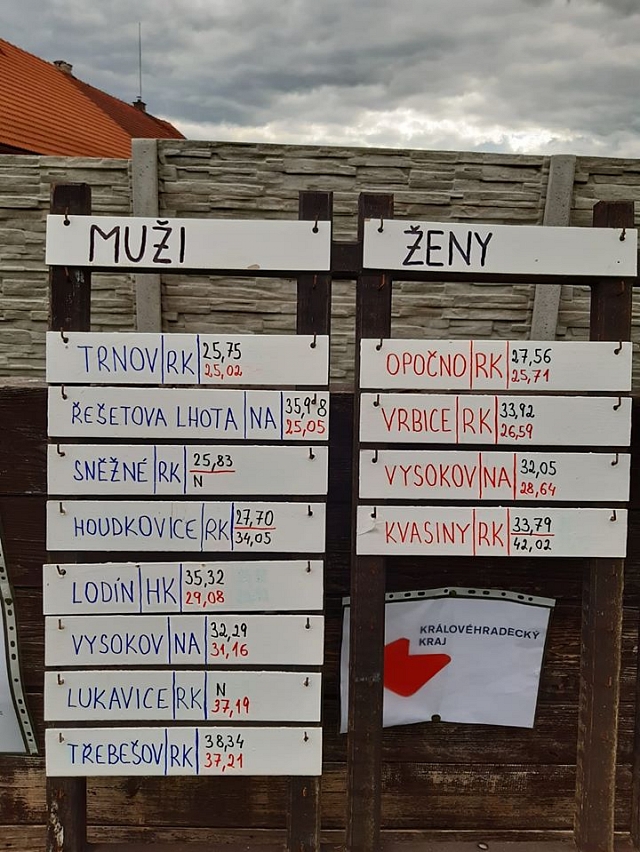 MUŽI
TRNOV RK 25,75
25,02
ŘEŠETOVA LHOTA NA
25,05
SNĚŽNÉ RK 25,83
N
HOUDKOVICE RK 27,70
34,05
LODÍN HK 35,32
29,08
VYSOKOV NA 32,29
31,16
LUKAVICE RK N
37,19
TŘEBEŠOV RK 38,34
37,21
ŽENY
OPOČNO RK 27,56
25,71
VRBICE RK 33,92
26,59
VYSOKOV NA 32,05
28,64
KVASINY RK 33,79
42,02
KRÁLOVÉHRADECKÝ
KRAJ